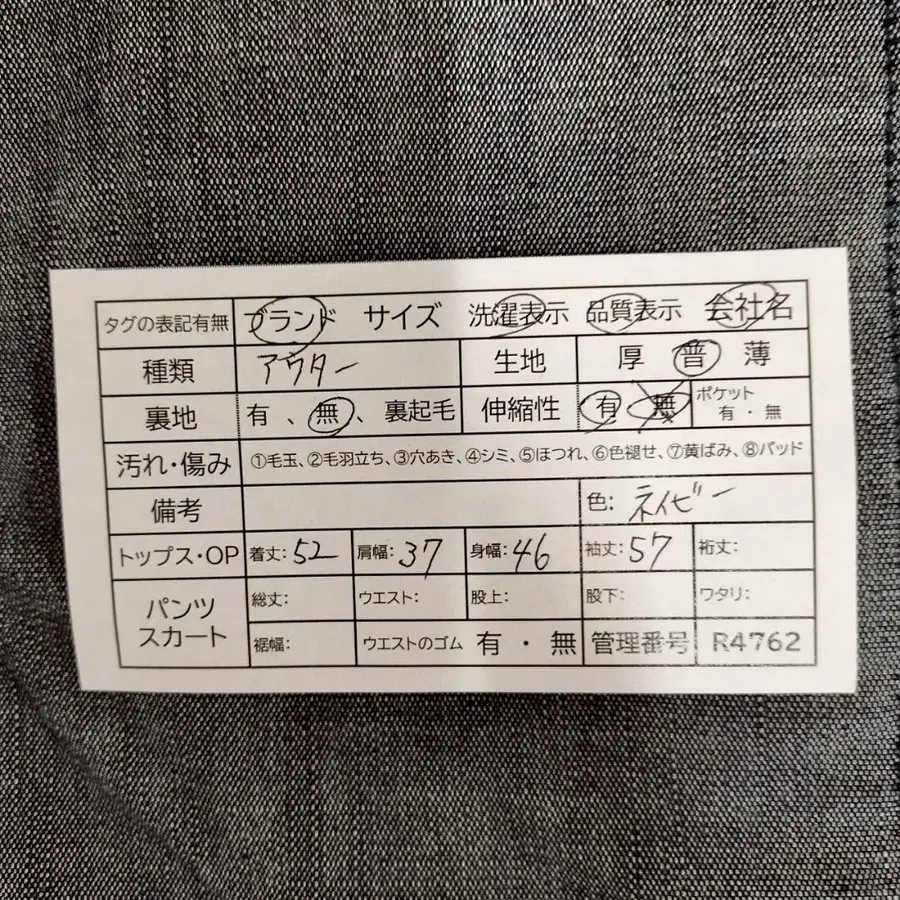 タグの表記有無 ブランド サイズ 洗濯表示 品質表示 会社名
種類 アウター 生地 厚 普 薄
裏地 有 、 無 、 裏起毛 伸縮性 有 無 ポケット 有 ・ 無
汚れ・傷み ①毛玉、②毛羽立ち、③穴あき、④シミ、⑤ほつれ、⑥色褪せ、⑦黄ばみ、⑧パッド
備考 色: ネイビー
トップス・OP 着丈: 52 肩幅: 37 身幅: 46 袖丈: 57 裄丈:
パンツ スカート 総丈: ウエスト: 股上: 股下: ワタリ:
裾幅: ウエストのゴム 有 ・ 無 管理番号 R4762